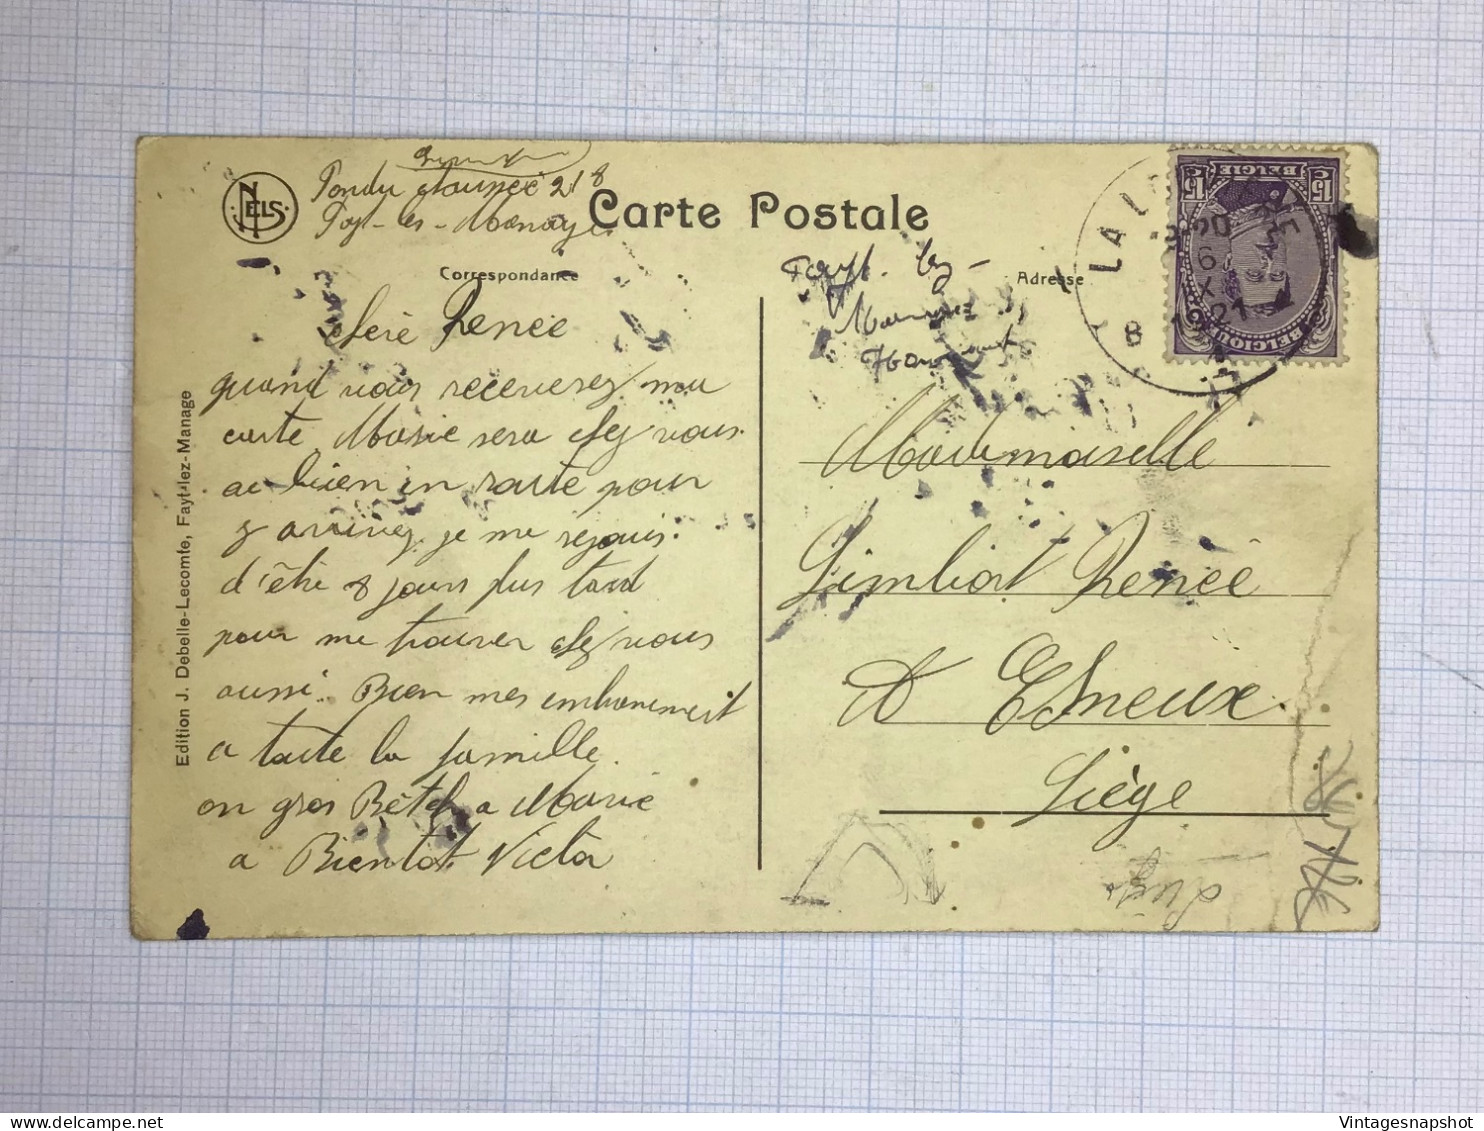 NELS
218
Fayt-les-Manage
Carte Postale
Correspondance
Adresse
Fayt-lez-
Manage
Hainaut
15 BELGIE 15
BELGIQUE
LA L
6 X
1921
Chère Renée
quand vous receverez ma
carte Marie sera chez vous
ou bien en route pour
y arrivez je me rejouis
d'être 8 jours plus tard
pour me trouver chez vous
aussi. Bien mes
a toute la famille
un gros a Marie
a Bientôt Victor
Mademoiselle
Limbiort Renée
A Esneux
Liège
Liège
Edition J. Debelle-Lecomte, Fayt-lez-Manage
Vintagesnapshot